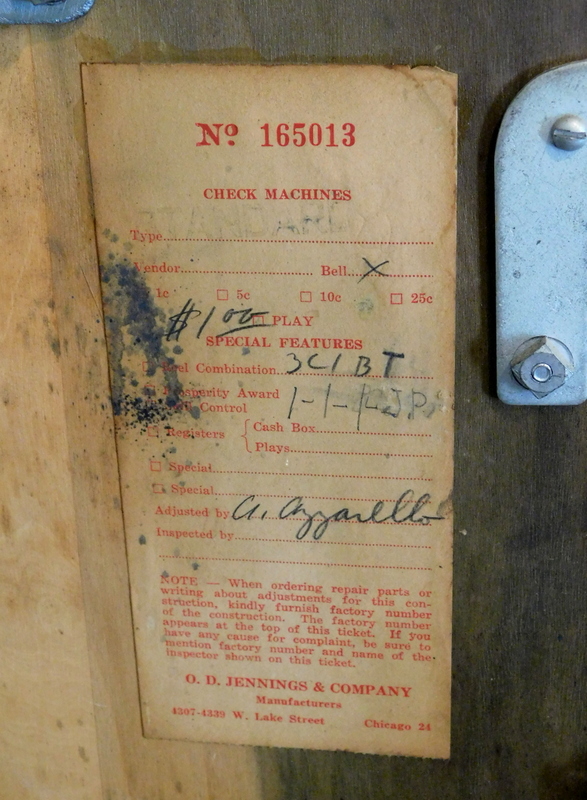 Nº 165013
CHECK MACHINES
Type
Vendor Bell X
1c 5c 10c 25c
$1.00 PLAY
SPECIAL FEATURES
Reel Combination 3C1BT
Prosperity Award
Control
Registers { Cash Box
Plays
Special
Special
Adjusted by A. Azzarello
Inspected by
NOTE — When ordering repair parts or
writing about adjustments for this con-
struction, kindly furnish factory number
of the construction. The factory number
appears at the top of this ticket. If you
have any cause for complaint, be sure to
mention factory number and name of the
inspector shown on this ticket.
O. D. JENNINGS & COMPANY
Manufacturers
4307-4339 W. Lake Street Chicago 24